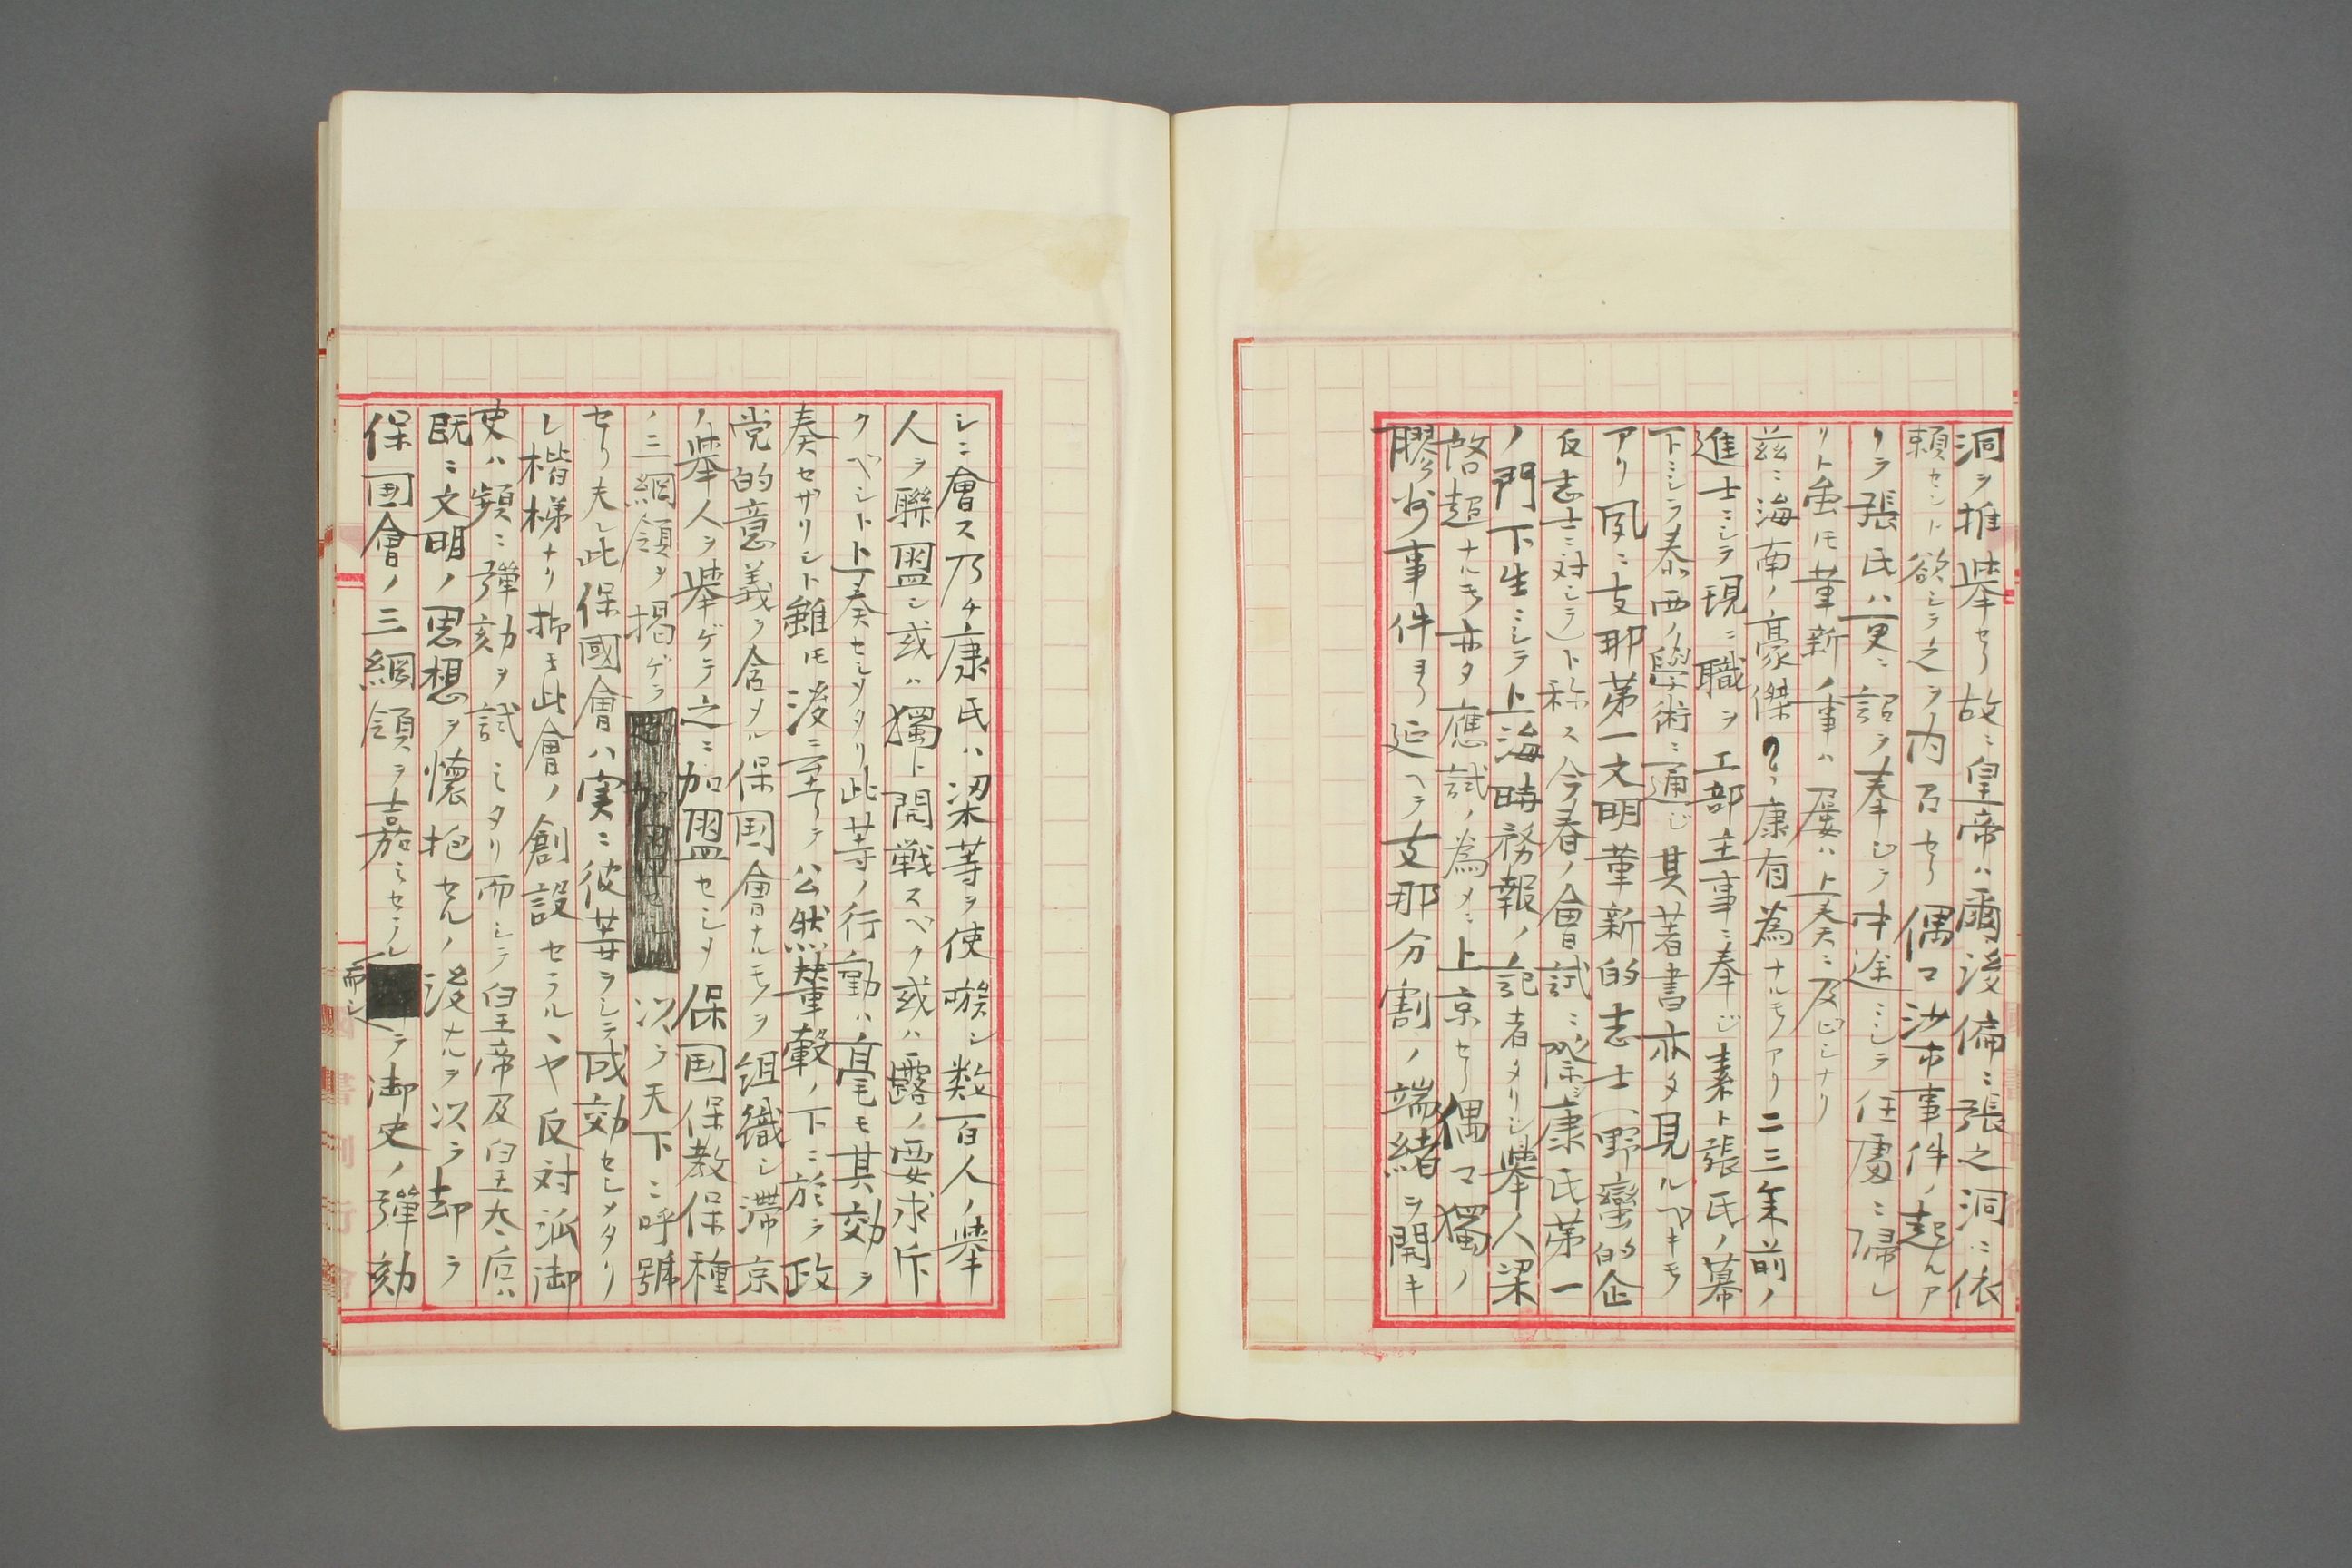 洞ヲ推挙セリ故ニ皇帝ハ爾後偏ニ張之洞ニ依
頼セント欲シテ之ヲ内召セリ偶マ沙市事件ノ起ルア
リテ張氏ハ更ニ詔ヲ奉ジテ中途ニシテ任處ニ帰レ
リト虽𪜈革新ノ事ハ屡ハ上奏ニ及ビシナリ
茲ニ海南ノ豪傑康有為ナルモノアリ二三年前ノ
進士ニシテ現ニ職ヲ工部主事ニ奉ジ素ト張氏ノ幕
下ニシテ泰西ノ學術ニ通ジ其著書亦タ見ルヘキモ
アリ夙ニ支那第一文明革新的志士(野蛮的企
反志士ニ対シテ)ト称ス今春ノ會試ニ際シ康氏第一
ノ門下生ニシテ上海時務報ノ記者タリシ挙人梁
啓超ナルモ亦タ應試ノ為メニ上京セリ偶マ獨ノ
膠州事件ヨリ延ヘテ支那分割ノ端緒ヲ開キ
シニ會ス乃チ康氏ハ梁等ヲ使嗾シ数百人ノ挙
人ヲ聯盟シ或ハ獨ト開戦スベク或ハ露ノ要求斥
クベシト上奏セシメタリ此等ノ行動ハ毫モ其効ヲ
奏セザリシト雖𪜈後ニ至リテ公然輦轂ノ下ニ於テ政
党的意義ヲ含メル保国會ナルモノヲ組織シ滞京
ノ挙人ヲ挙ゲテ之ニ加盟セシメ保国保教保種
ノ三綱領ヲ掲ゲテ以テ天下ニ呼號
セリ夫レ此保國會ハ実ニ彼等ヲシテ成効セシメタリ
シ楷梯ナリ抑モ此會ノ創設セラルヽヤ反対派御
史ハ頻ニ弾劾ヲ試ミタリ而シテ皇帝及皇太后ハ
既ニ文明ノ思想ヲ懐抱セルノ後ナルヲ以テ却テ
保国會ノ三綱領ヲ嘉ミセラル而シテ御史ノ弾劾